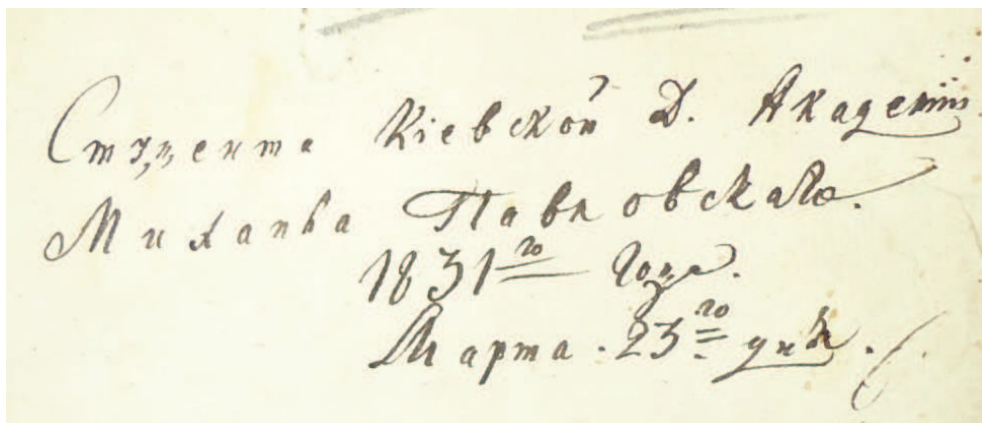 Студента Кіевской Д. Академіи
Михаила Павловскаго.
1831го года.
Марта. 23го дня.